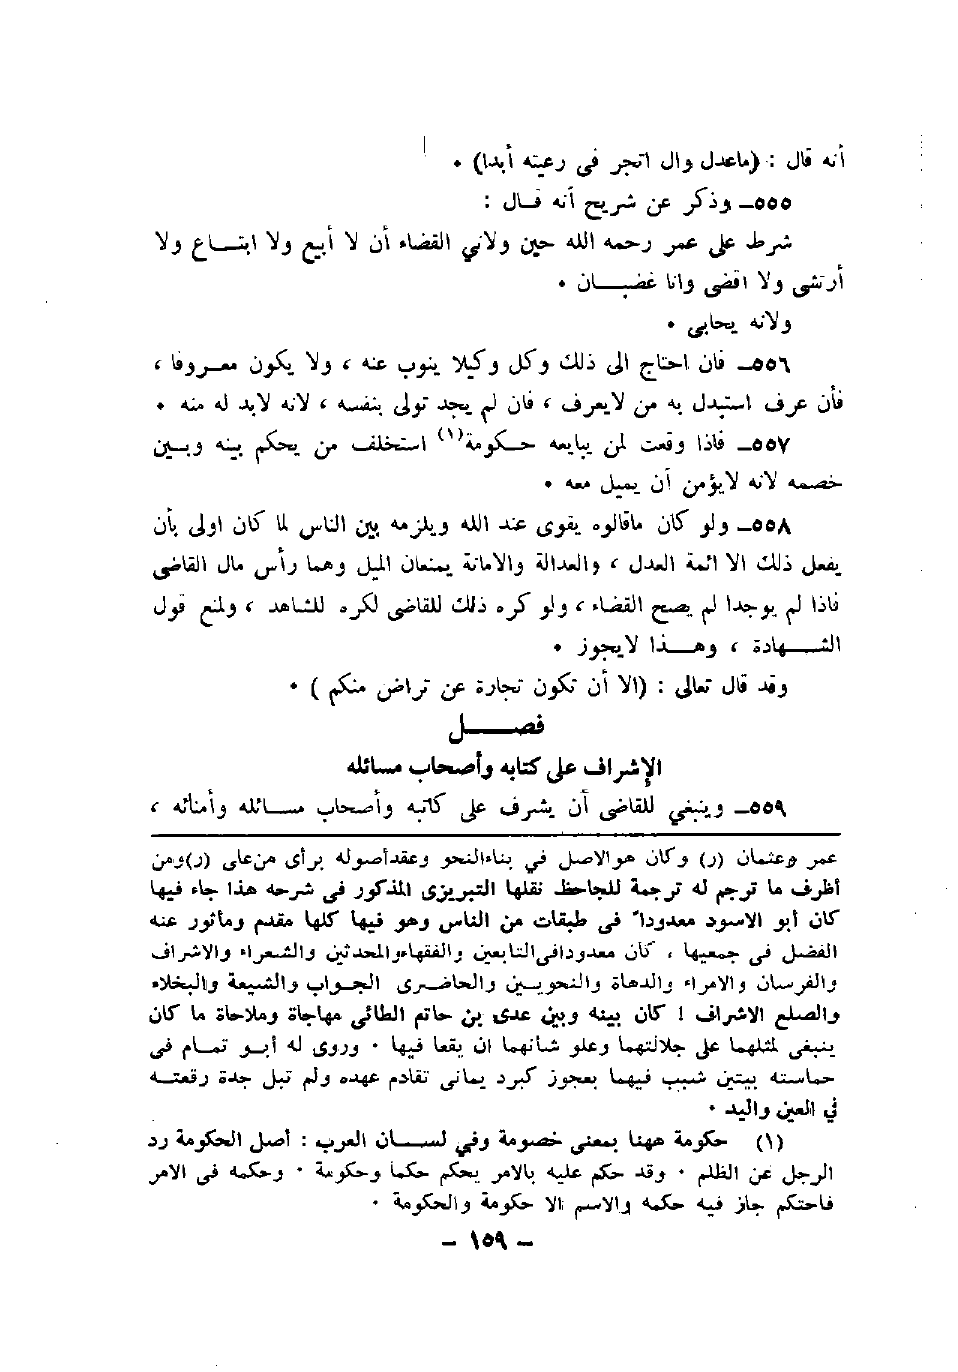 أنه قال : (ماعدل وال اتجر فى رعيته أبدا) •
٥٥٥ــ وذكر عن شريح أنه قــال :
شرط على عمر رحمه الله حين ولاني القضاء أن لا أبيع ولا ابتــاع ولا
أرتشى ولا اقضى وانا غضبــان •
ولانه يحابى •
٥٥٦ــ فان احتاج الى ذلك وكل وكيلا ينوب عنه ، ولا يكون معــروفا ،
فأن عرف استبدل به من لايعرف ، فان لم يجد تولى بنفسه ، لانه لابد له منه •
٥٥٧ــ فاذا وقعت لمن يبايعه حــكومة(١) استخلف من يحكم بينه وبــين
خصمه لانه لايؤمن أن يميل معه •
٥٥٨ــ ولو كان ماقالوه يقوى عند الله ويلزمه بين الناس لما كان اولى بأن
يفعل ذلك الا ائمة العدل ، والعدالة والامانة يمنعان الميل وهما رأس مال القاضى
فاذا لم يوجدا لم يصح القضاء ، ولو كره ذلك للقاضى لكره للشاهد ، ولمنع قول
الشــهادة ، وهــذا لايجوز •
وقد قال تعالى : (الا أن تكون تجارة عن تراض منكم ) •
فصــــل
الإشراف على كتابه وأصحاب مسائله
٥٥٩ــ وينبغي للقاضى أن يشرف على كاتبه وأصحاب مســائله وأمنائه ،
عمر وعثمان (ر) وكان هوالاصل في بناءالنحو وعقدأصوله برأى من‌على (ر)ومن
أظرف ما ترجم له ترجمة للجاحظ نقلها التبريزى المذكور فى شرحه هذا جاء فيها
كان أبو الاسود معدوداً فى طبقات من الناس وهو فيها كلها مقدم ومأثور عنه
الفضل فى جمعيها ، كان معدودافى‌التابعين والفقهاءوالمحدثين والشعراء والاشراف
والفرسان والامراء والدهاة والنحويــين والحاضــرى الجــواب والشيعة والبخلاء
والصلع الاشراف ! كان بينه وبين عدى بن حاتم الطائى مهاجاة وملاحاة ما كان
ينبغى لمثلهما على جلالتهما وعلو شأنهما ان يقعا فيها • وروى له أبــو تمــام فى
حماسته بيتين شبب فيهما بعجوز كبرد يمانى تقادم عهده ولم تبل جدة رقعتــه
في العين واليد •
(١) حكومة ههنا بمعنى خصومة وفي لســان العرب : أصل الحكومة رد
الرجل عن الظلم • وقد حكم عليه بالامر يحكم حكما وحكومة • وحكمه فى الامر
فاحتكم جاز فيه حكمه والاسم الا حكومة والحكومة •
– ١٥٩ –